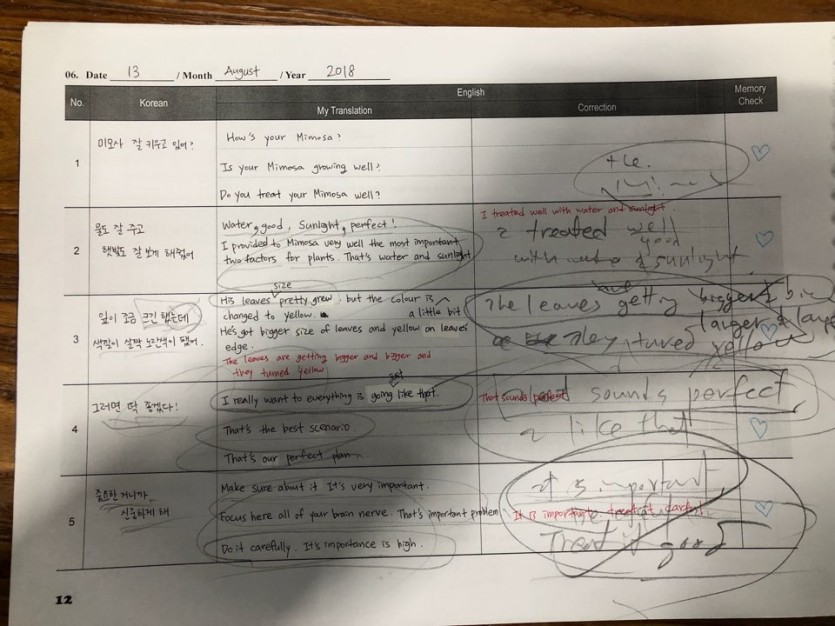 06. Date 13 / Month August / Year 2018
No. Korean English Memory Check
My Translation Correction
1
미모사 잘 키우고 있어?
How's your Mimosa?
Is your Mimosa growing well?
Do you treat your Mimosa well?
2
물도 잘 주고
햇빛도 잘 보게 해줬어
Water, good, Sunlight, perfect!
I provided to Mimosa very well the most important
two factors for plants. That's water and sunlight
I treated well with water and sunlight.
treated well
good
with sunlight
3
잎이 조금 크긴 했는데
색깔이 살짝 노란색이 됐어.
size
His leaves pretty grew, but the colour is
changed to yellow. a little bit
He's got bigger size of leaves and yellow on leaves
edge.
The leaves are getting bigger and bigger and
they turned yellow
The leaves getting bigger &
larger &
they turned yellow
4
그러면 딱 좋겠다!
I really want to everything is going like that.
That's the best scenario.
That's our perfect plan.
That sounds perfect
sounds perfect
like that
5
중요한 거니까
신중하게 해
Make sure about it It's very important.
Focus here all of your brain nerve. That's important problem
Do it carefully. It's importance is high.
It is important
It is important treat it
Treat it good
12